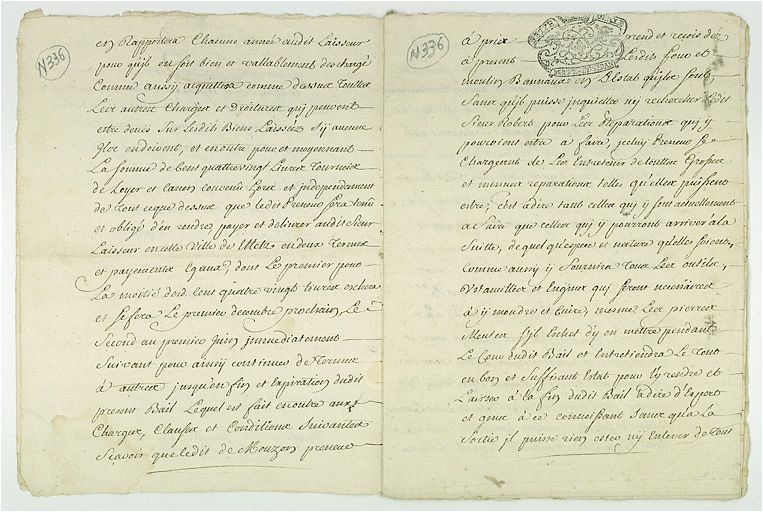 N 336
et Rapportera Chacune année audit Laisseur
pour qu'jls en soit bien et vallablement deschargé
Comme aussy acquittera comme dessus Touttes
Les autres Charges et droitures qui peuvent
estre deues Sur Lesdits Biens Laissés sy aucune
et outre pour et moyennant
La somme de Cent quattre vingt Livres Tournois
de Loyer et Canon convenu Loué et independament
de Tout ceque dessus que ledit Preneur sera tenu
et obligé d'en rendre payer et delivrer audit Sieur
Laisseur en cette Ville de Metz en deux Termes
et payements Egaux, dont Le premier pour
La moitié desd. Cent quatre vingt Livres eschera
et se fera Le premier decembre prochain Le
Second au premier Juin jmmediatement
Suivant pour ainsy continuer de Termes
à autres jusqu'en fin et Expiration dudit
present Bail Lequel est fait en outre aux
Charges, Clauses et Conditions Suivantes
Sçavoir que ledit de Mouzon preneur
N 336
à prix rend et reçois déz
à present Lesdits four et
moulin Bannaux en L'estat qu'jls sont,
Sans qu'jl puisse jnquietter ny rechercher Ledit
Sieur Robert pour Les Reparations qui y
pourroient estre à faire, jceluy Preneur se
Chargeant de Les Entretenir de touttes Grosses
et menues reparations telles qu'elles puissent
estre, c'est adire tant celles qui y sont actuellement
à faire que celles qui y pourront arriver àla
Suitte, de quel qu'espece et nature qu'elles soient,
Comme aussy y fournira Tous Les outils,
Ustancilles et Engins qui seront necessaires
à y moudre et Cuire, mesme Les pierres
Meules s'jl Eschet d'y en mettre pendant
Le Cours dudit Bail et Entretiendra Le Tout
en bon et Suffisant Estat pour Ly rendre et
Laisser à la fin dudit Bail à dire d'Expert
et gens à ce connoissant Sans qu'a La
Sortie jl puisse rien oster ny Enlever de Tout